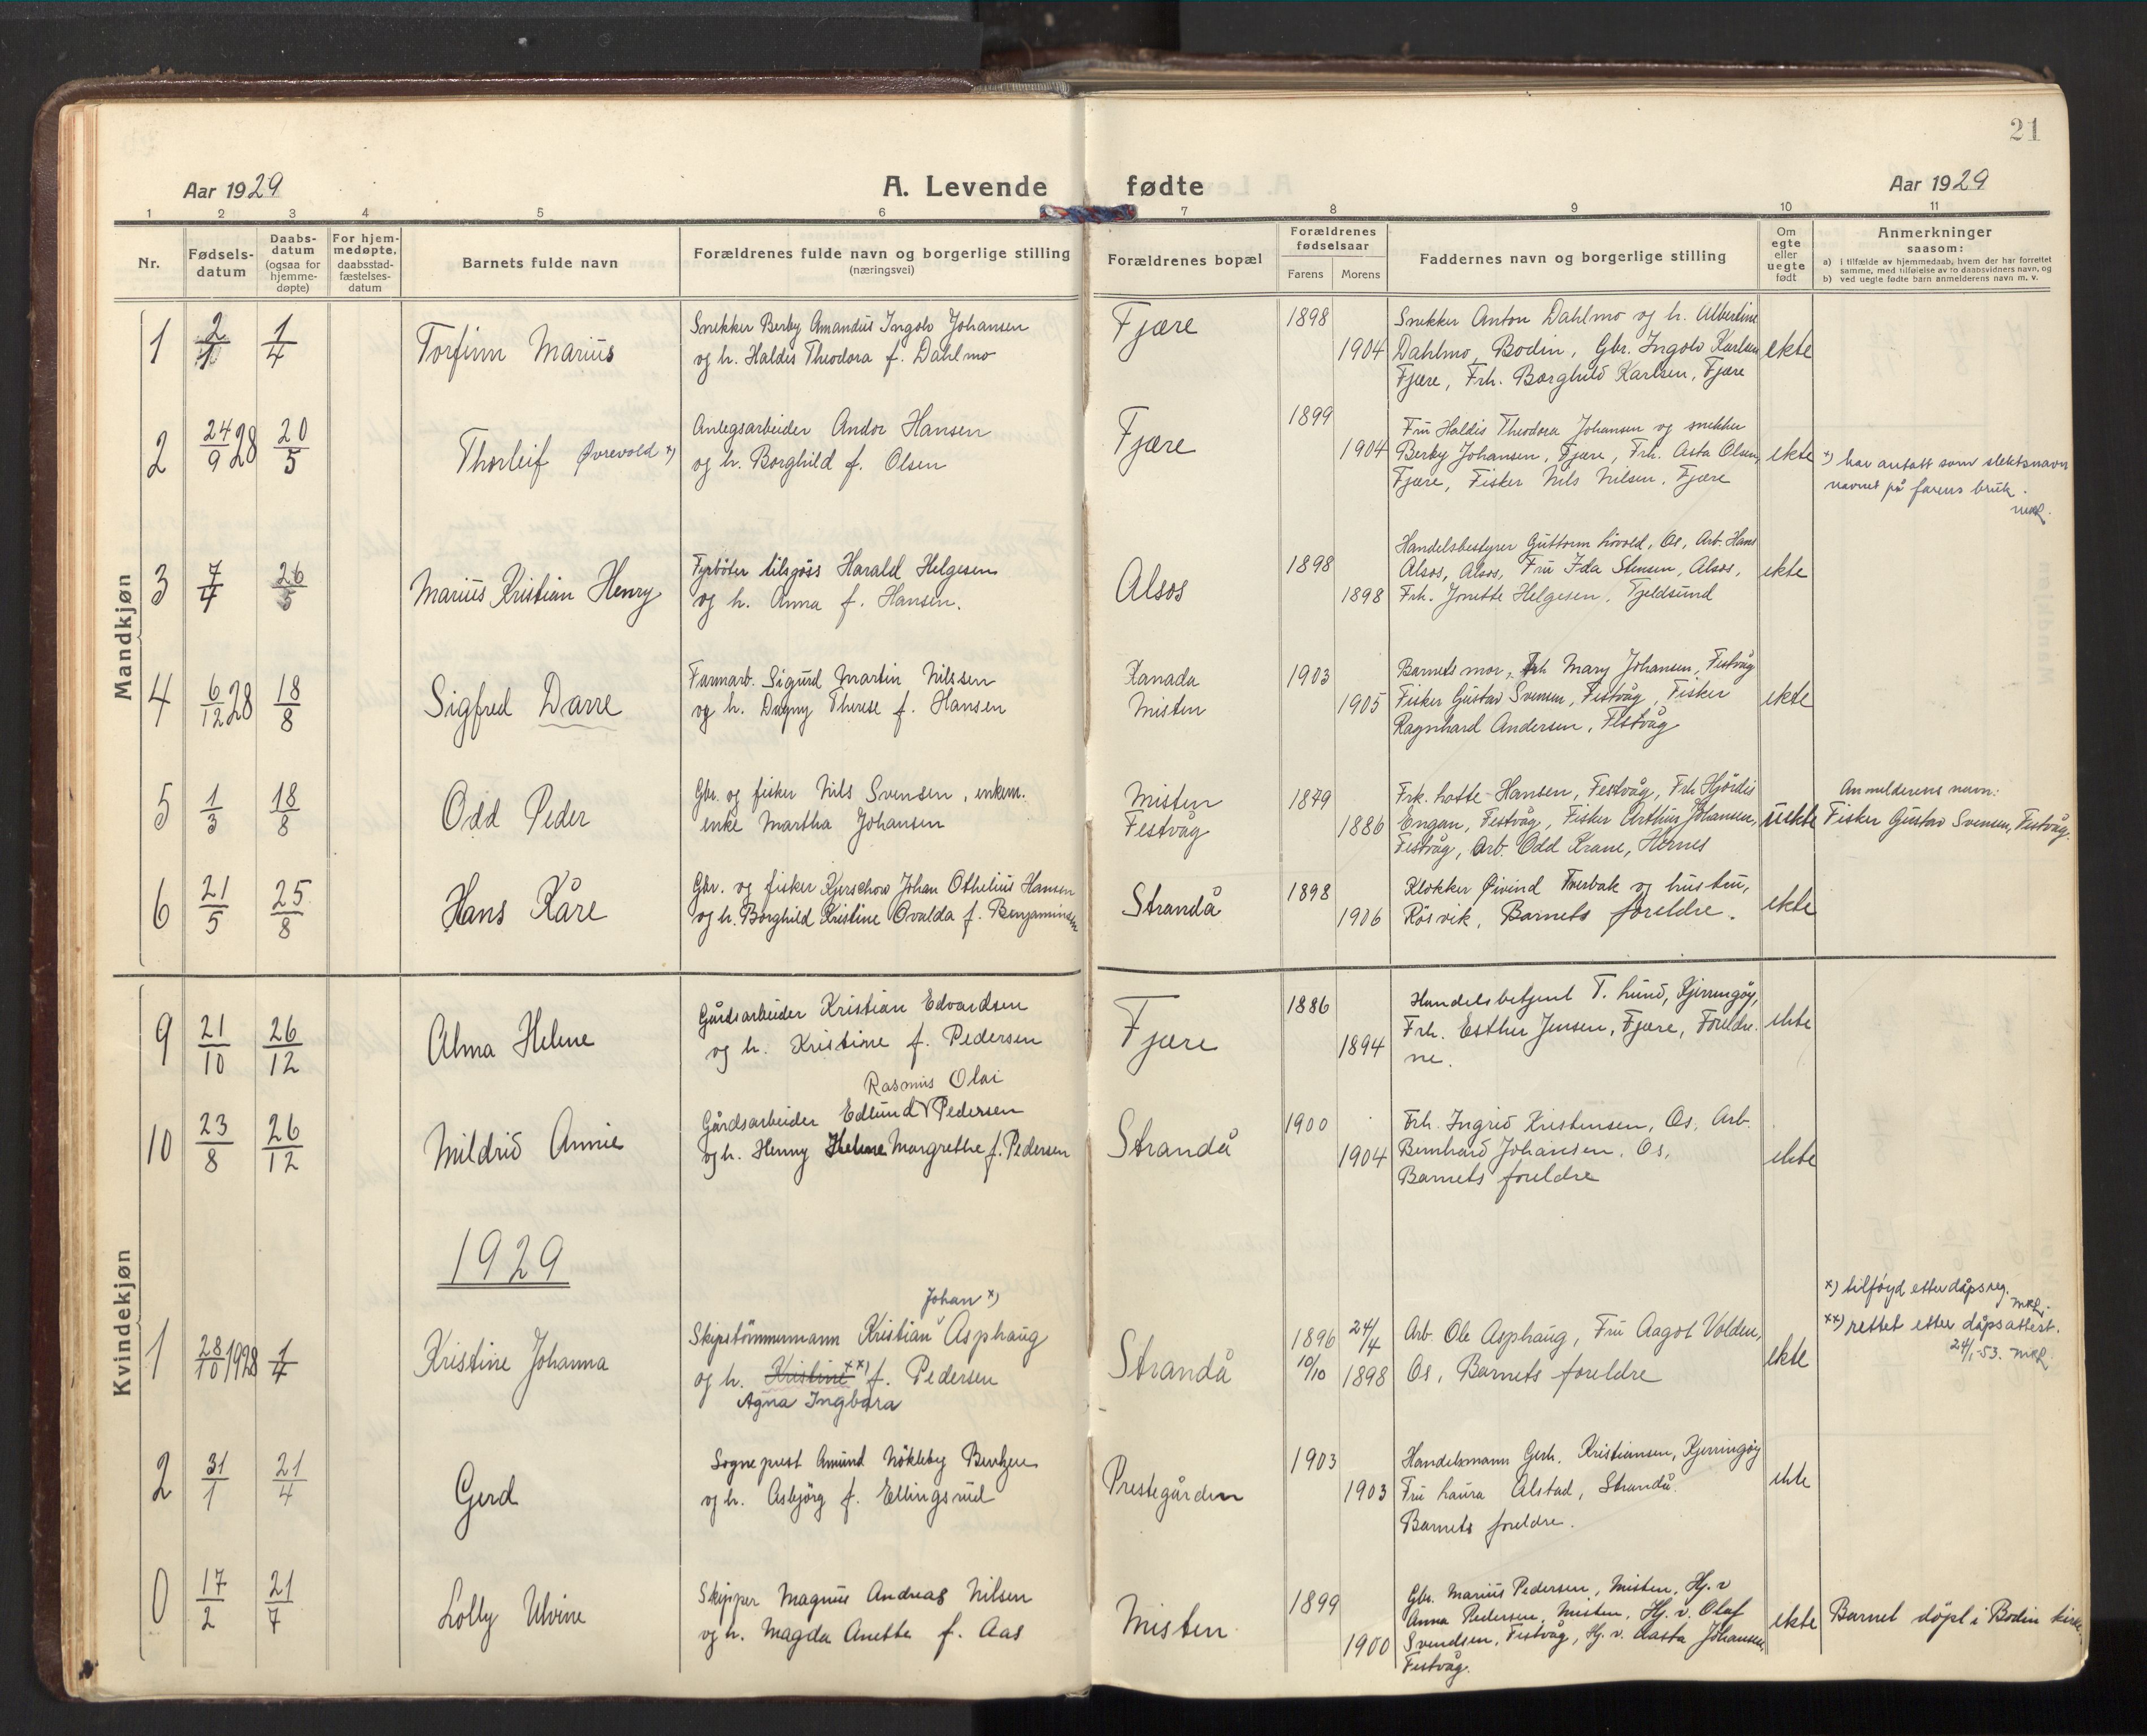 21
Aar 1929
A. Levende fødte
Aar 1929
1 2 3 4 5 6 7 8 9 10 11
Nr.
Fødsels-
datum
Daabs-
datum
(ogsaa for
hjemme-
døpte)
For hjem-
medøpte,
daabsstad-
fæstelses-
datum
Barnets fulde navn
Forældrenes fulde navn og borgerlige stilling
(næringsvei)
Forældrenes bopæl
Forældrenes
fødselsaar
Farens Morens
Faddernes navn og borgerlige stilling
Om
egte
eller
uegte
født
Anmerkninger
saasom:
a) i tilfælde av hjemmedaab, hvem der har forrettet
samme, med tilføielse av to daabsvidners navn, og
b) ved uegte fødte barn anmelderens navn m. v.
Mandkjøn
1 2/1 1/4 Torfinn Marius
Snekker Berby Amandus Ingolv Johansen
og h. Haldis Theodora f. Dahlmo
Fjære
1898
1904
Snekker Anton Dahlmo og h. Albertine
Dahlmo, Bodin, Gbr. Ingolv Karlsen
Fjære, Frk. Borghild Karlsen, Fjære
ekte
2 24/9 28 20/5 Thorleif Øvrevold x)
Anlegsarbeider Andor Hansen
og h. Borghild f. Olsen
Fjære
1899
1904
Fru Haldis Theodora Johansen og snekker
Berby Johansen, Fjære, Frk. Asta Olsen,
Fjære, Fisker Nils Nilsen, Fjære
ekte
x) har antatt som slektsnavn
navnet på farens bruk.
3 7/4 26/5 Marius Kristian Henry
Fyrbøter tilsgöss Harald Helgesen
og h. Anna f. Hansen.
Alsos
1898
1898
Handelsbestyrer Guttorm Løvold, Os, Arb. Hans
Alsos, Alsos, Fru Ida Stensen, Alsos,
Frk. Jonette Helgesen, Tjeldsund
ekte
4 6/12 28 18/8 Sigfred Darre
Farmarb. Sigurd Martin Nilssen
og h. Dagny Therese f. Hansen
Kanada
Misten
1903
1905
Barnets mor, Frk Mary Johansen, Festvåg
Fisker Gustav Svensen, Festvåg, Fisker
Ragnhard Andersen, Festvåg
ekte
5 1/3 18/8 Odd Peder
Gbr. og fisker Nils Svensen, enkem.
enke Martha Johansen
Misten
Festvåg
1879
1886
Frk. Lotte Hansen, Festvåg, Frk Hjördis
Engan, Festvåg, Fisker Arthur Johansen,
Festvåg, Arb. Odd Krane, Hernes
uekte
Anmelderens navn:
Fisker Gustav Svensen, Festvåg.
6 21/5 25/8 Hans Kåre
Gbr. og fisker Kjerschow Johan Othelius Hansen
og h. Borghild Kristine Ovalda f. Benjaminsen
Strandå
1898
1906
Klokker Öivind Tverbak og hustru,
Rösvik, Barnets foreldre.
ekte
Kvindekjøn
9 21/10 26/12 Alma Helene
Gårdsarbeider Kristian Edvardsen
og h. Kristine f. Pedersen
Fjære
1886
1894
Handelsbetjent T. Lund, Kjerringöy,
Frk. Esther Jensen, Fjære, Foreldre-
ne.
ekte
10 23/8 26/12 Mildrid Annie
Rasmus Olai
Gårdsarbeider Edlund Pedersen
og h. Henny Helene Margrethe f. Pedersen
Strandå
1900
1904
Frk. Ingrid Kristensen, Os, Arb.
Bernhard Johansen, Os,
Barnets foreldre
ekte
1929
1 28/10 1928 1/4 Kristine Johanna
Johan x)
Skipstömmermann Kristian Asphaug
og h. Kristine xx) f. Pedersen
Agna Ingbora
Strandå
1896 24/4
10/10 1898
Arb. Ole Asphaug, Fru Aagot Volden,
Os, Barnets foreldre
ekte
x) tilföyd etter dåpsreg.
xx) rettet etter dåpsattest.
24/1-53.
2 31/1 21/4 Gerd
Sogneprest Amund Nökleby Bentzen
og h. Asbjörg f. Ellingsrud
Prestegården
1903
1903
Handelsmann Gerh. Kristiansen, Kjerringöy
Fru Laura Alstad, Strandå.
Barnets foreldre.
ekte
0 17/2 21/7 Lolly Ulvine
Skipper Magnus Andreas Nilsen
og h. Magda Anette f. Aas
Misten
1899
1900
Gbr. Marius Pedersen, Misten, Hj. v
Anna Pedersen, Misten, Hj. v. Olaf
Svendsen, Festvåg, Hj. v. Aasta Johansen,
Festvåg.
ekte
Barnet döpt i Bodin kirke.